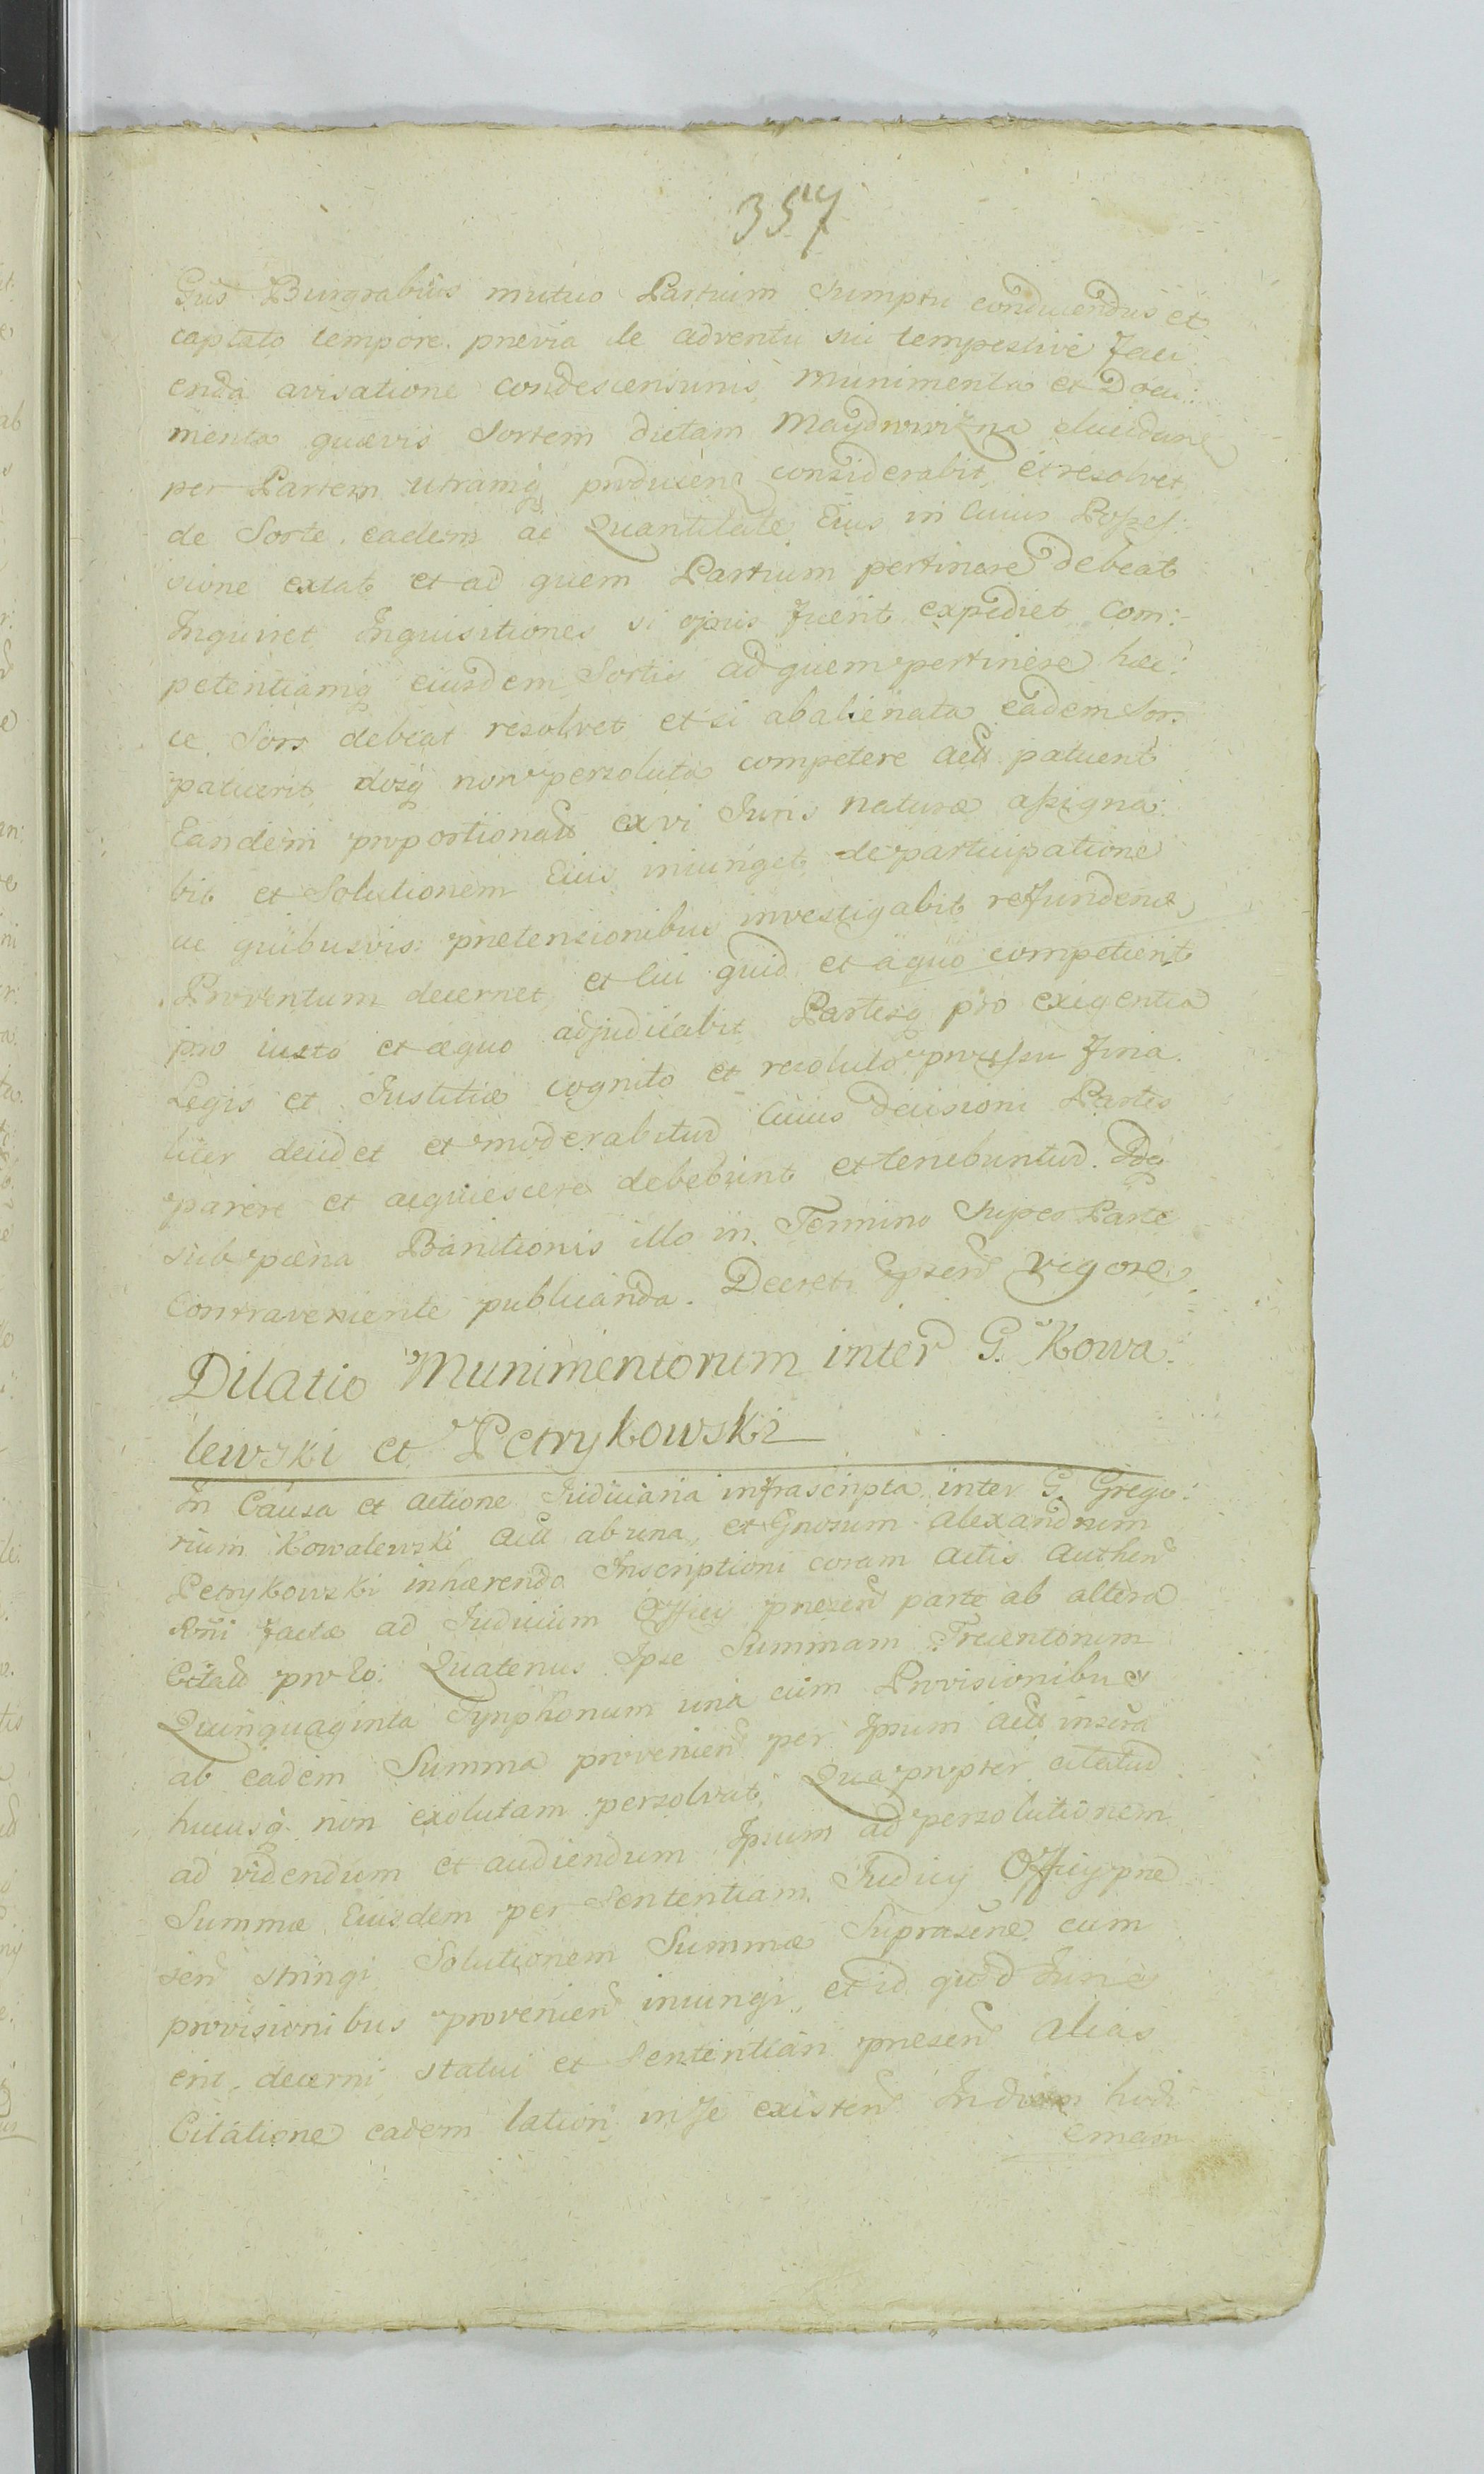 357
Gńs Burgrabius mutuo Partium sumptu conducendus et
captato tempore. prævia de adventu sui tempestive faci
enda avisatione condescensurus, munimenta et Docu:
menta quævis Sortem dictam Maydwwizna elucidan
per Partem utramq producen considerabit, et resolvet
de Sorte eadem ac Quantitate Eius in Cuius Posses:
sione extat et ad quem Partium pertinere debeat
Inquiret Inquisitiones si opus fuerit expediet Com:
petentiamq eiusdem Sortis ad quem pertinere hæ:
ce Sors debeat resolvet et si abalienata eadem Sors
patuerit, dosq non persoluta competere act patuerit
Eandem proportionali ex vi Juris naturæ assigna:
bit et Solutionem Eius iniunget de participatione
ac quibusvis prætensionibus investigabit refunden
Proventum decernet, et Cui quid et a quo competierit
pro iusto et æquo adjudicabit Partesq pro exigentia
Legis et Justitiæ cognito et resoluto processu fina
liter decidet et moderabitur Cuius decisioni Partes
parere et acquiescere debebunt et tenebuntur. Idq
sub pæna Banitionis illo in Termino super Parte
Contraveniente publicanda. Decreti præsen vigore
Dilatio Munimentorum inter G. Kowa
lewski et Petrykowski
In Causa et actione Judiciaria infrascripta inter G. Grego:
rium Kowalewski act ab una, et Gnosum Alexandrum
Petrykowski inhærendo Inscriptioni coram Actis Authen
Rńi factæ ad Judicium Officy præsen parte ab altera
Citatt pro Eo: Quatenus Ipse Summam Trecentorum
Quinquaginta Tynphonum una cum Provisionibus
ab eadem Summa provenien per Ipsum act insura
hucusq non exolutam persolvat, Qua propter citatur
ad videndum et audiendum Ipsum ad persolutionem
Summæ Eiusdem per Sententiam Judicy Officy præ
sen stringi Solutionem Summæ Supraxne cum
provisionibus provenien iniungi, et id quod Juris
erit, decerni statui et Sententiari præsen alias
Citatione eadem latiori in se existen Indcam hodi
ernam